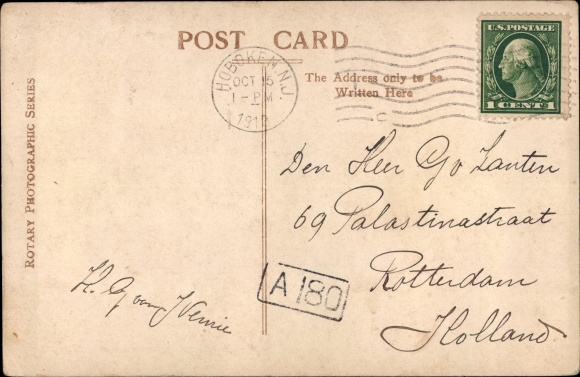 POST CARD
U.S. POSTAGE
1 CENT 1
HOBOKEN, N.J.
OCT 5
1-PM
The Address only to be
Written Here
ROTARY PHOTOGRAPHIC SERIES
Den Heer Go Lanten
69 Palastinastraat
Rotterdam
Holland
A 180
K. G van